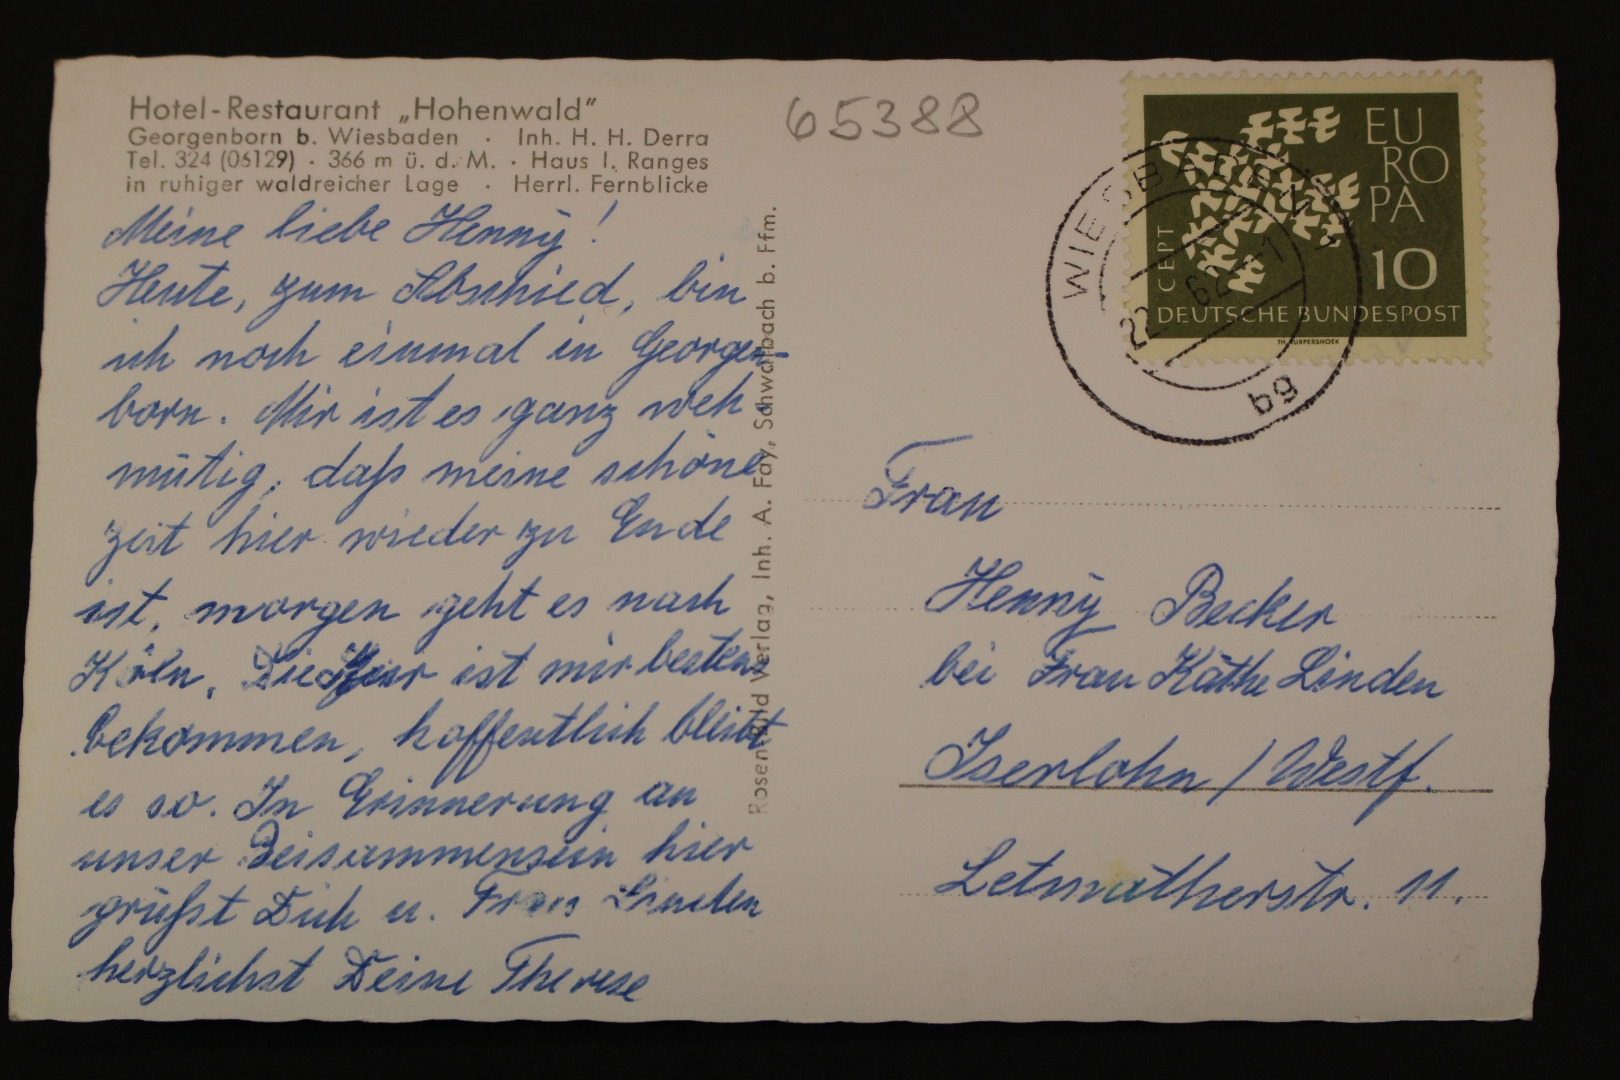 Hotel-Restaurant „Hohenwald"
Georgenborn b. Wiesbaden · Inh. H. H. Derra
Tel. 324 (06129) · 366 m ü. d. M. · Haus I. Ranges
in ruhiger waldreicher Lage · Herrl. Fernblicke
Meine liebe Henny!
Heute, zum Abschied, bin
ich noch einmal in Georgen-
born. Mir ist es ganz weh
mütig, daß meine schöne
Zeit hier wieder zu Ende
ist, morgen geht es nach
Köln. Die Kur ist mir bestens
bekommen, hoffentlich bleibt
es so. In Erinnerung an
unser Beisammensein hier
grüßt Dich u. Frau Linden
herzlichst Deine Therese
Rosen-Bild Verlag, Inh. A. Fay, Schwalbach b. Ffm.
65388
EU
RO
PA
CEPT
10
DEUTSCHE BUNDESPOST
WIESBADEN 1
22 62
bg
Frau
Henny Becker
bei Frau Käthe Linden
Iserlohn / Westf.
Letmatherstr. 11.